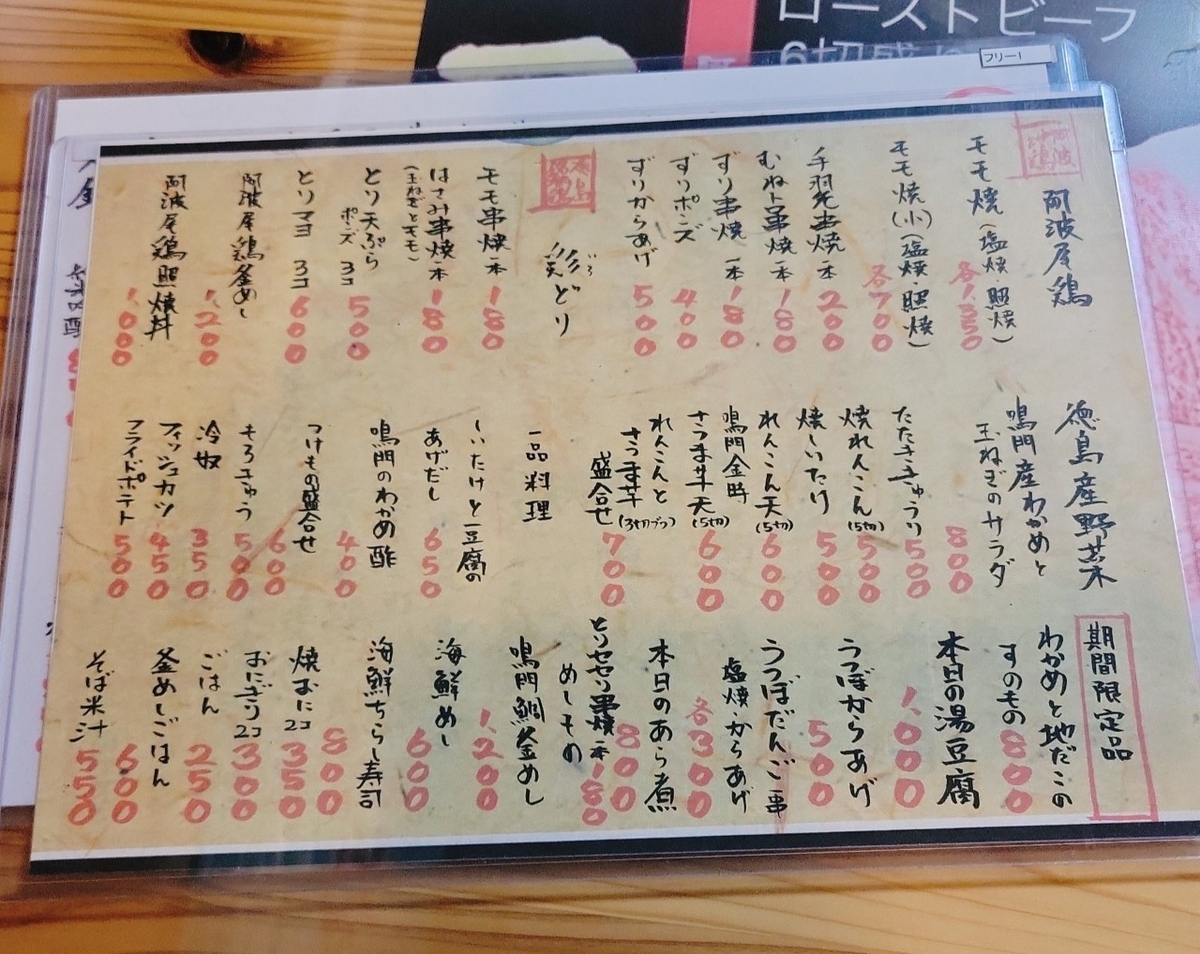 ローストビーフ
フリー1
阿波尾鶏
モモ焼(塩焼 照焼) 各1,350
モモ焼(小)(塩焼・照焼) 各700
手羽先串焼 一本 200
むね串焼 一本 180
ずり串焼 一本 180
ずりポンズ 400
ずりからあげ 500
彩どり
いろ
モモ串焼 一本 180
はさみ串焼 一本 180
(玉ねぎとモモ)
とり天ぷら
ポンズ 3コ 500
とりマヨ 3コ 600
阿波尾鶏釜めし 1,200
阿波尾鶏照焼丼 1,000
徳島産野菜
鳴門産わかめと
玉ねぎのサラダ 800
たたききゅうり 500
焼れんこん(5切) 500
焼しいたけ 500
れんこん天(5切) 600
鳴門金時
さつま芋天(5切) 600
れんこんと
さつま芋(3切づつ)
盛合せ 700
一品料理
しいたけと豆腐の
あげだし 650
鳴門のわかめ酢 400
つけもの盛合せ 600
もろきゅう 500
冷奴 350
フィッシュカツ 450
フライドポテト 500
期間限定品
わかめと地だこの
すのもの 800
本日の湯豆腐 1,000
うつぼからあげ 500
うつぼだんご串
塩焼からあげ 各300
本日のあら煮 800
とりセセリ串焼 一本 180
めしもの
鳴門鯛釜めし 1,200
海鮮めし 600
海鮮ちらし寿司 800
焼おに 2コ 350
おにぎり 2コ 300
ごはん 250
釜めしごはん 600
そば米汁 550